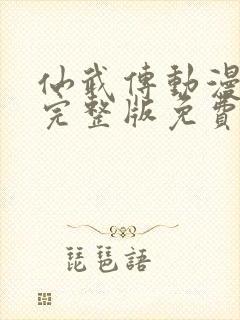 仙武傳動漫
完整版免費
琵琶語